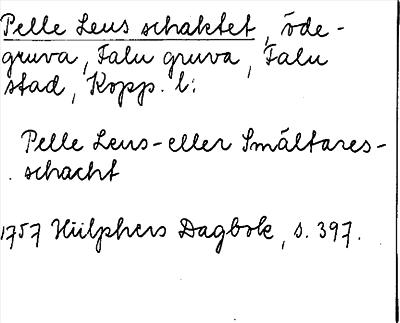 Pelle Leus schaktet, öde-
gruva, Falu gruva, Falu
stad, Kopp. l:
Pelle Leus- eller Smältares-
schacht
1757 Hülphers Dagbok, s. 397.